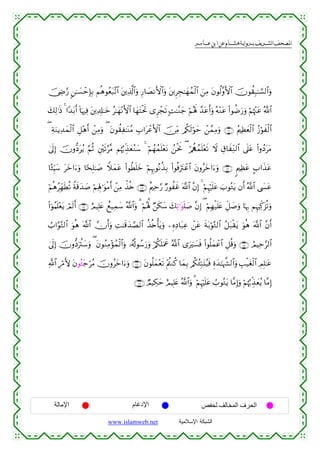 المصحف الشريف برواية هشام عن ابن عامر
وَالسَّٰبِقُونَ الْأَوَّلُونَ مِنَ الْمُهَٰجِرِينَ وَالْأَنصَارِ وَالَّذِينَ اتَّبَعُوهُم بِإِحْسَٰنٍ رَّضِيَ
اللَّهُ عَنْهُمْ وَرَضُوا عَنْهُ وَأَعَدَّ لَهُمْ جَنَّٰتٍ تَجْرِي تَحْتَهَا الْأَنْهَٰرُ خَٰلِدِينَ فِيهَا أَبَدًا ذَٰلِكَ
الْفَوْزُ الْعَظِيمُ وَمِمَّنْ حَوْلَكُم مِّنَ الْأَعْرَابِ مُنَٰفِقُونَ وَمِنْ أَهْلِ الْمَدِينَةِ
مَرَدُوا عَلَى النِّفَاقِ لَا تَعْلَمُهُمْ نَحْنُ نَعْلَمُهُمْ سَنُعَذِّبُهُم مَّرَّتَيْنِ ثُمَّ يُرَدُّونَ إِلَىٰ
عَذَابٍ عَظِيمٍ وَءَاخَرُونَ اعْتَرَفُوا بِذُنُوبِهِمْ خَلَطُوا عَمَلًا صَٰلِحًا وَءَاخَرَ سَيِّئًا
عَسَى اللَّهُ أَن يَتُوبَ عَلَيْهِمْ إِنَّ اللَّهَ غَفُورٌ رَّحِيمٌ خُذْ مِنْ أَمْوَٰلِهِمْ صَدَقَةً تُطَهِّرُهُمْ
وَتُزَكِّيهِم بِهَا وَصَلِّ عَلَيْهِمْ إِنَّ صَلَوَٰتِكَ سَكَنٌ لَّهُمْ وَاللَّهُ سَمِيعٌ عَلِيمٌ أَلَمْ يَعْلَمُوا
أَنَّ اللَّهَ هُوَ يَقْبَلُ التَّوْبَةَ عَنْ عِبَادِهِ وَيَأْخُذُ الصَّدَقَٰتِ وَأَنَّ اللَّهَ هُوَ التَّوَّابُ
الرَّحِيمُ وَقُلِ اعْمَلُوا فَسَيَرَى اللَّهُ عَمَلَكُمْ وَرَسُولُهُ وَالْمُؤْمِنُونَ وَسَتُرَدُّونَ إِلَىٰ
عَٰلِمِ الْغَيْبِ وَالشَّهَٰدَةِ فَيُنَبِّئُكُم بِمَا كُنتُمْ تَعْمَلُونَ وَءَاخَرُونَ مُرْجَـُٔونَ لِأَمْرِ اللَّهِ
إِمَّا يُعَذِّبُهُمْ وَإِمَّا يَتُوبُ عَلَيْهِمْ وَاللَّهُ عَلِيمٌ حَكِيمٌ
الحرف المخالف لحفص الإدغام الإمالة
الشبكة الإسلامية www.islamweb.net